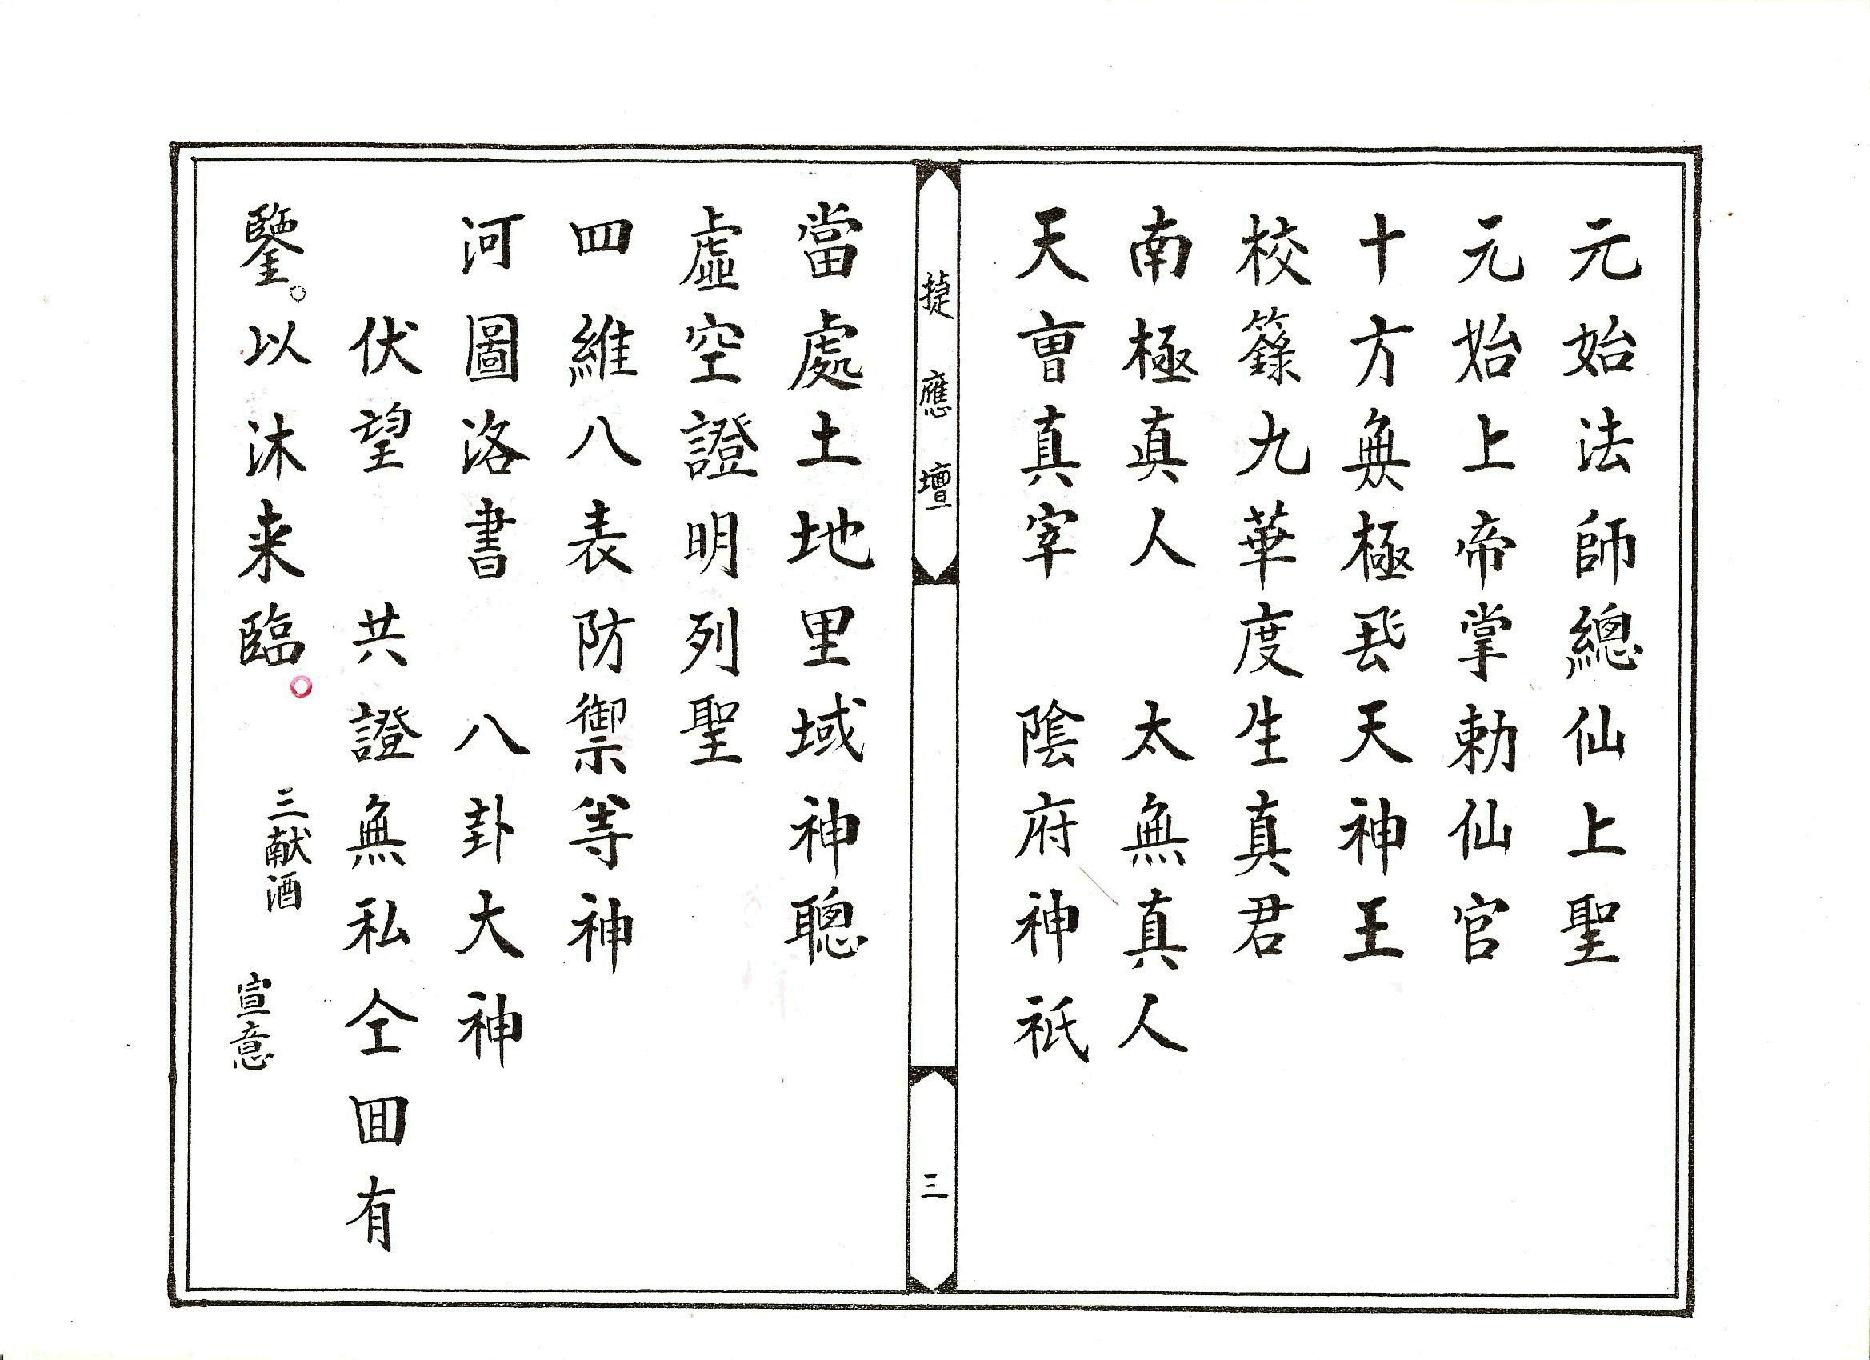 元始法師總仙上聖
元始上帝掌勅仙官
十方無極飛天神王
校籙九華度生真君
南極真人　太無真人
天曹真宰　陰府神祇
捷應壇
三
當處土地里域神聰
虛空證明列聖
四維八表防禦等神
河圖洛書　八卦大神
伏望　共證無私仝囬有
鑒。以沐来臨。
三献酒　宣意